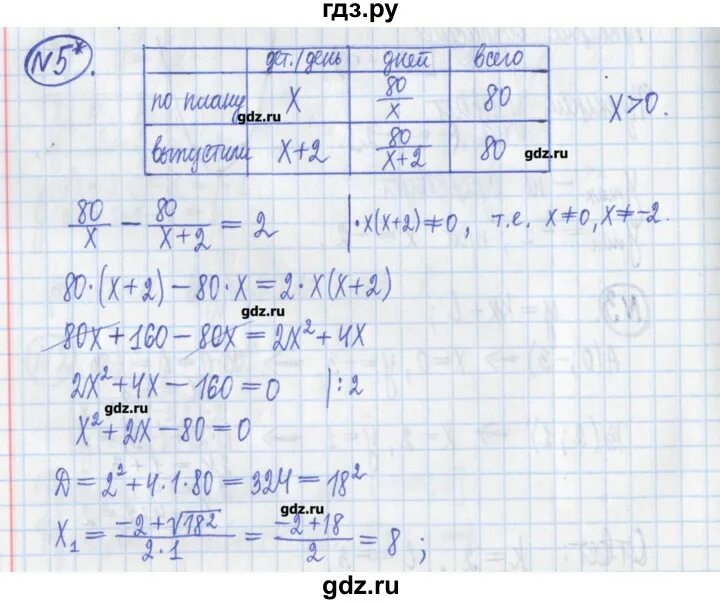 гдз.ру
N5*.
дет./день дней всего
по плану x 80/x 80 x>0.
выпустили x+2 80/(x+2) 80
gdz.ru
gdz.ru
80/x − 80/(x+2) = 2 | · x(x+2)≠0, т.е. x≠0, x≠−2.
80·(x+2) − 80·x = 2·x(x+2)
gdz.ru
80x + 160 − 80x = 2x² + 4x
2x² + 4x − 160 = 0 | :2
gdz.ru
x² + 2x − 80 = 0
Д = 2² + 4·1·80 = 324 = 18²
gdz.ru
x₁ = (−2+√18²)/(2·1) = (−2+18)/2 = 8;
gdz.ru
gdz.ru